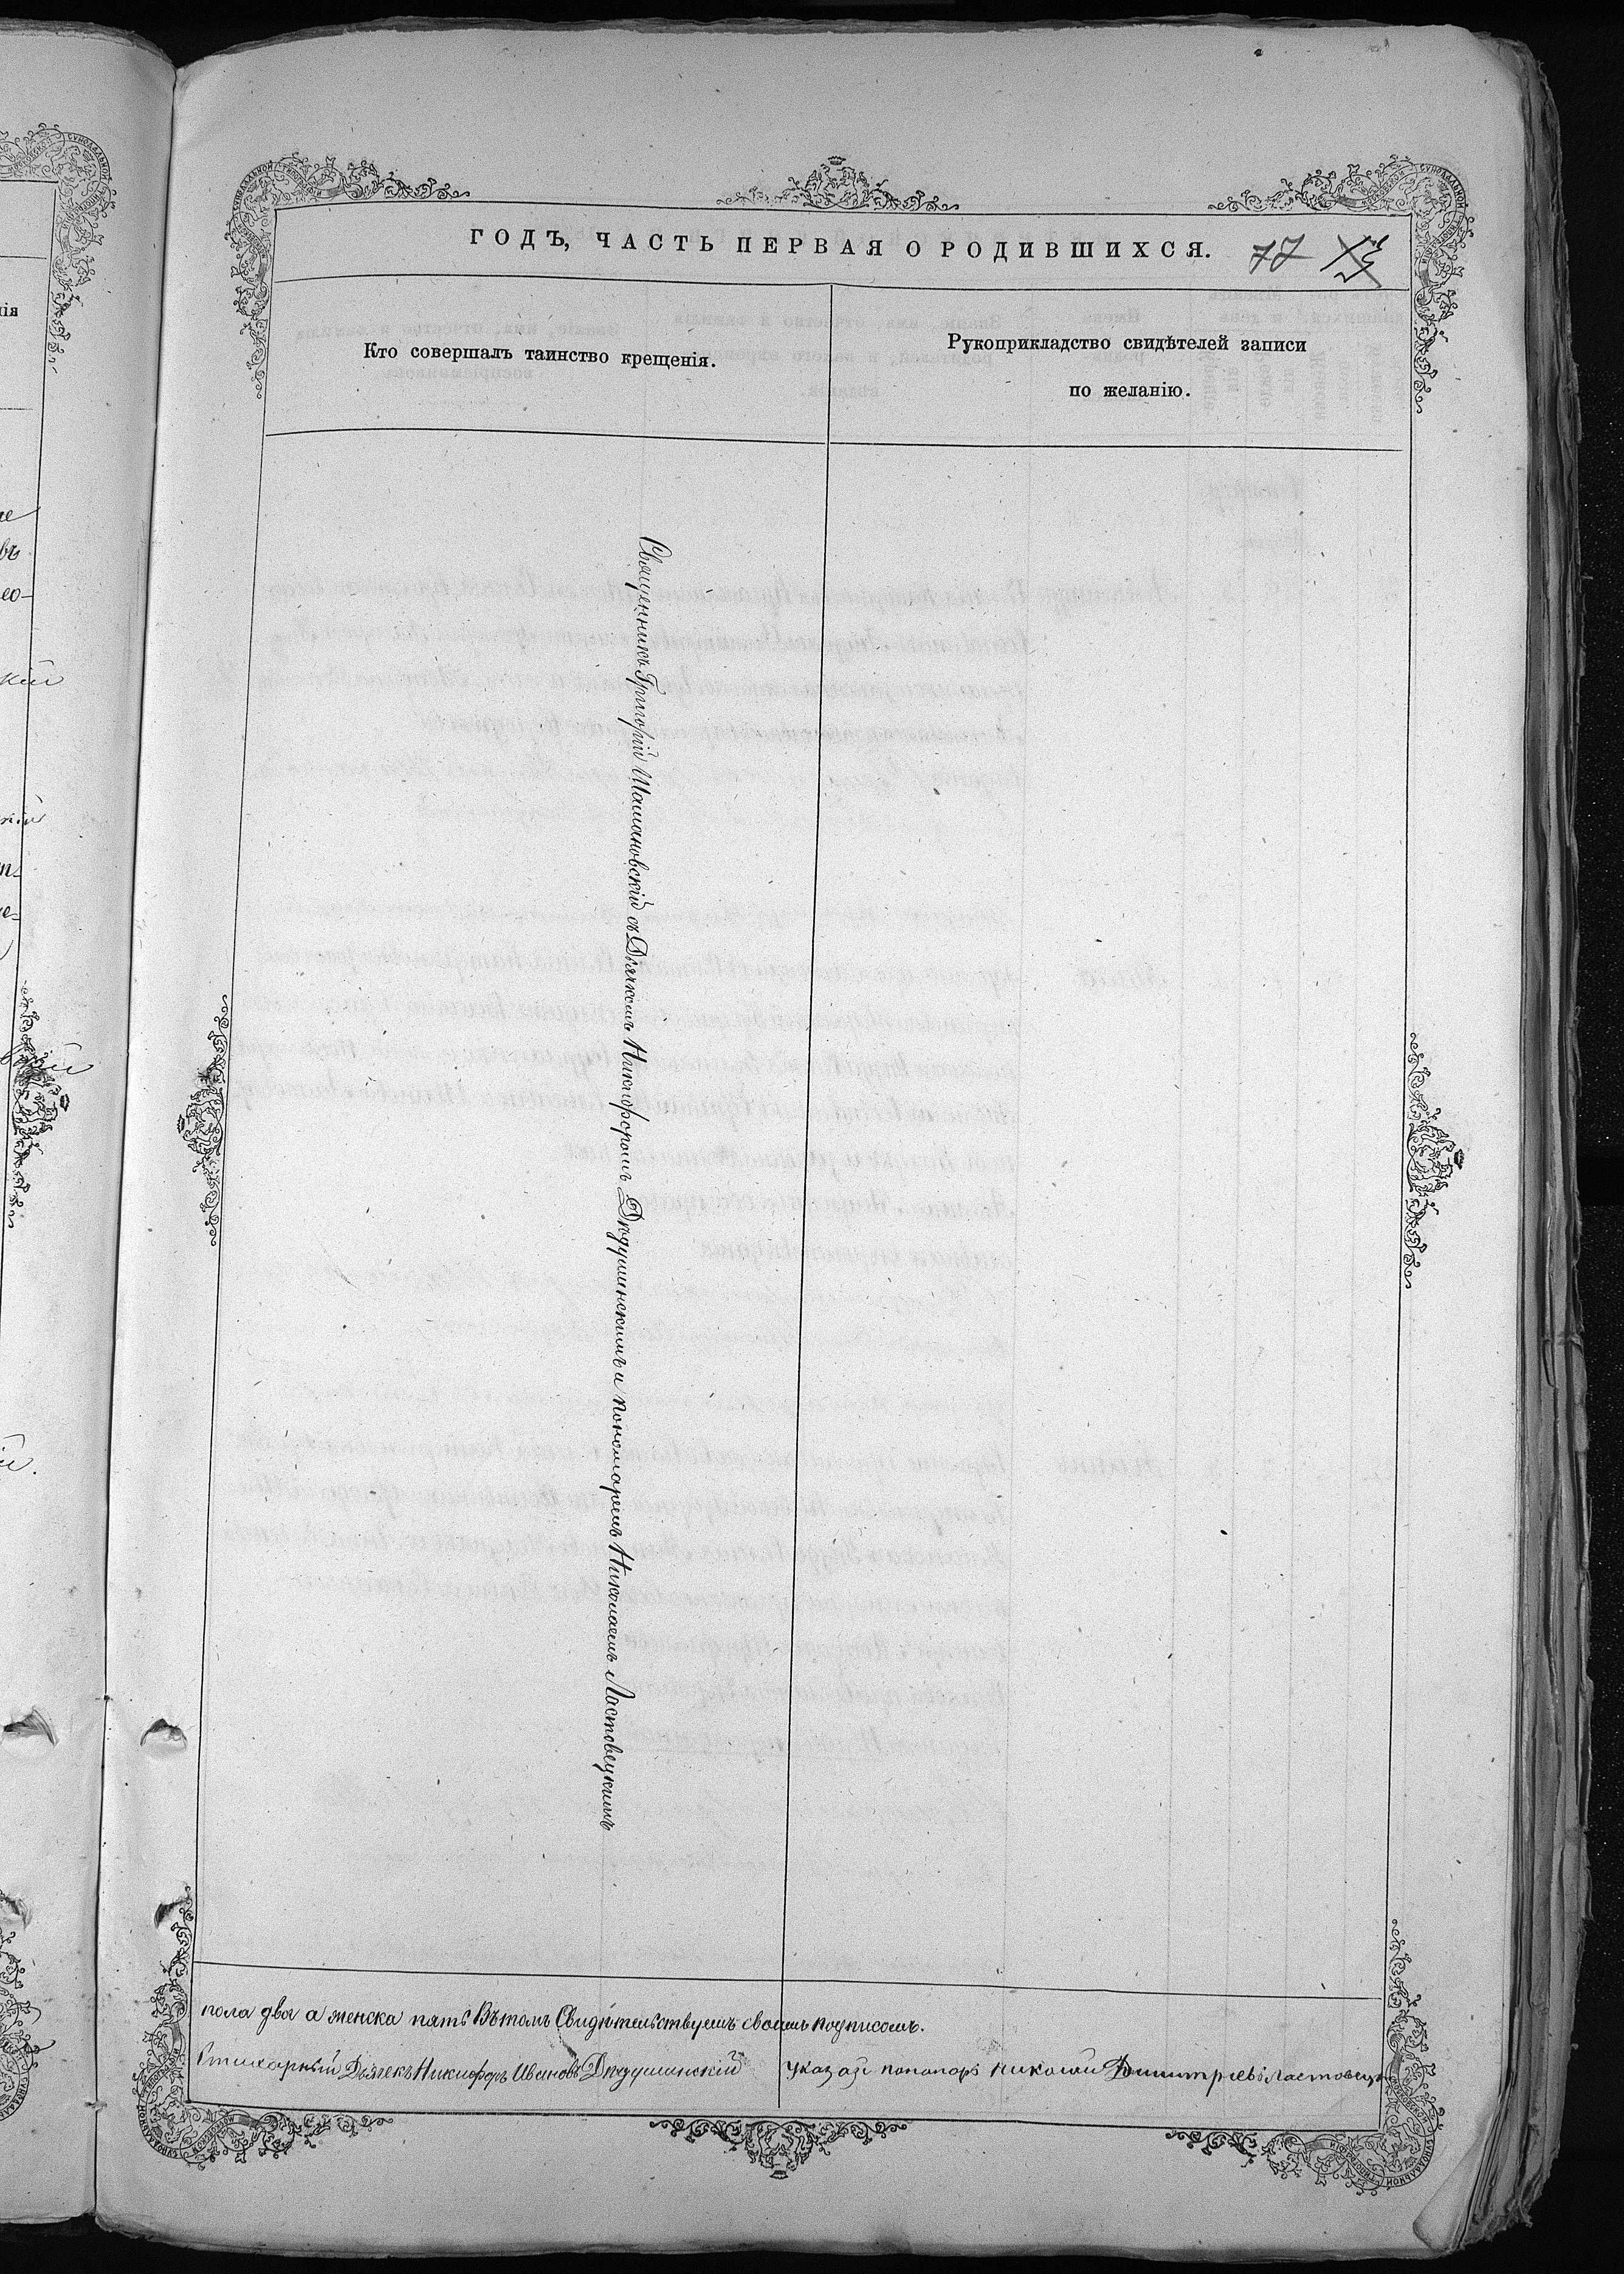 ГОДЪ, ЧАСТЬ ПЕРВАЯ О РОДИВШИХСЯ. 77
Кто совершалъ таинство крещенія.
Рукоприкладство свидѣтелей записи
по желанію.
Священникъ Григорій Шашановскій съ Дьячкомъ Никифоромъ Дѣдушинскимъ и пономаремъ Николаемъ Ластовецкимъ
пола два а женска пять Вътомъ Свидѣтельствуемъ своимъ подписомъ.
Стихарный Дьячекъ Никифоръ Ивановъ Дѣдушинскій
пономарь Николай Димитріевъ Ластовецк